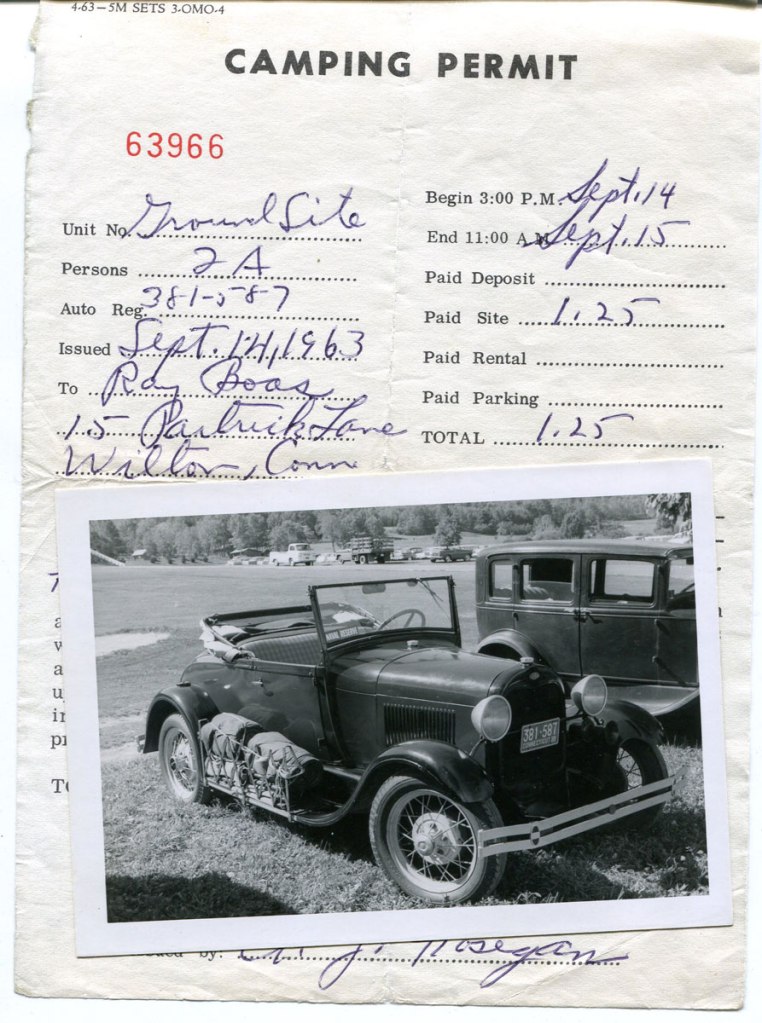 4-63—5M SETS 3-OMO-4
CAMPING PERMIT
63966
Unit No. Ground Site
Persons 2 A
Auto Reg. 381-587
Issued Sept. 14, 1963
To Ray Boas
15 Partrick Lane
Wilton, Conn
Begin 3:00 P.M. Sept. 14
End 11:00 A.M. Sept. 15
Paid Deposit
Paid Site 1.25
Paid Rental
Paid Parking
TOTAL 1.25
NAVAL RESERVE
381·587
CONNECTICUT
by: